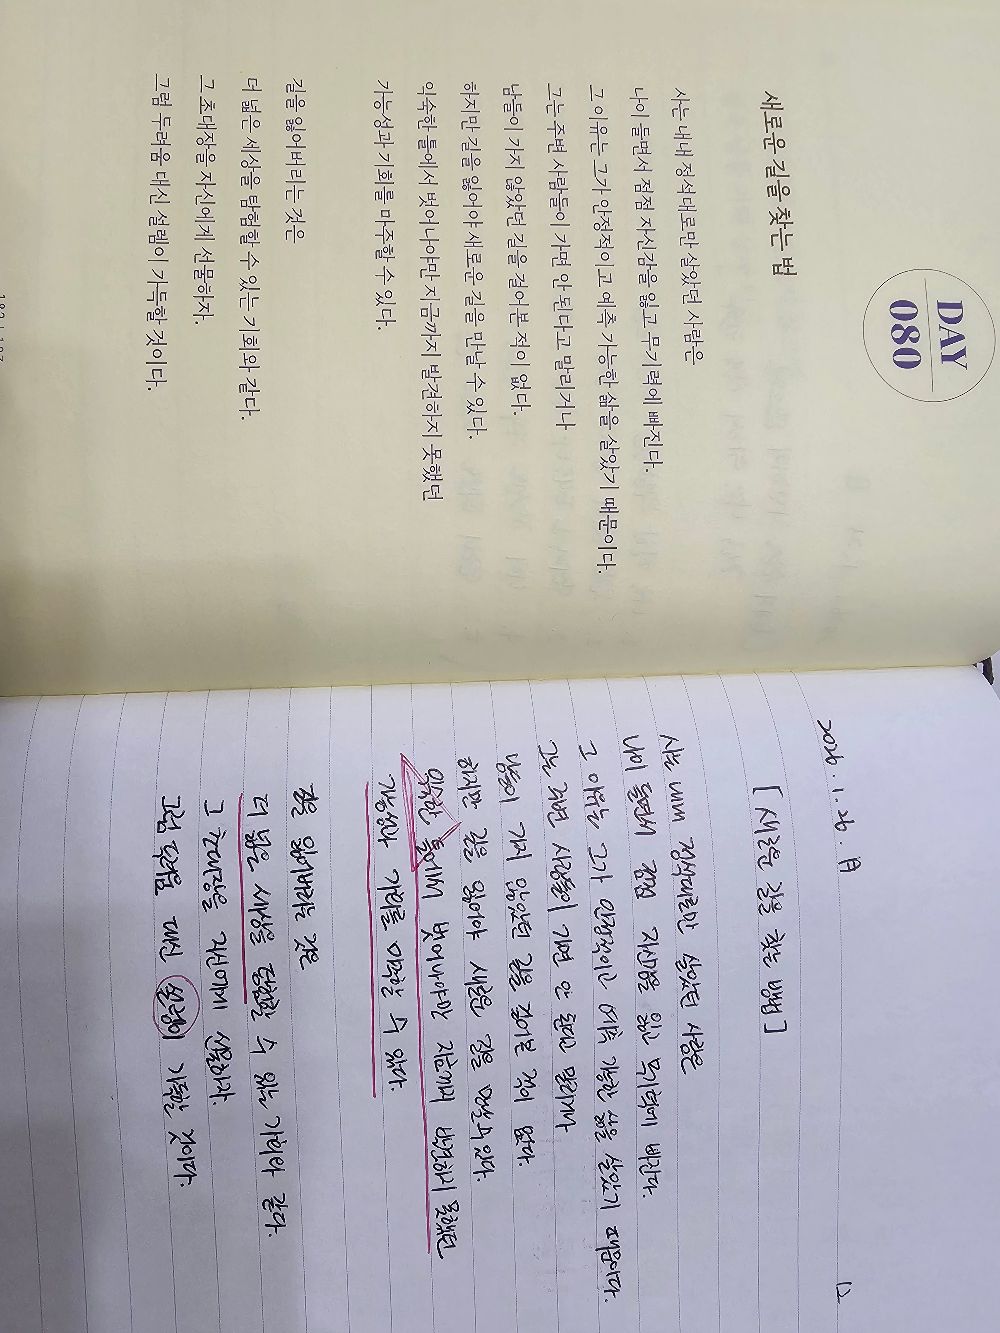 DAY
080
새로운 길을 찾는 법
사는 내내 정석대로만 살았던 사람은
나이 들면서 점점 자신감을 잃고 무기력에 빠진다.
그 이유는 그가 안정적이고 예측 가능한 삶을 살았기 때문이다.
그는 주변 사람들이 가면 안 된다고 말리거나
남들이 가지 않았던 길을 걸어본 적이 없다.
하지만 길을 잃어야 새로운 길을 만날 수 있다.
익숙한 틀에서 벗어나야만 지금까지 발견하지 못했던
가능성과 기회를 마주할 수 있다.
길을 잃어버리는 것은
더 넓은 세상을 탐험할 수 있는 기회와 같다.
그 초대장을 자신에게 선물하자.
그럼 두려움 대신 설렘이 가득할 것이다.
2026. 1. 26. 月
[ 새로운 길을 찾는 방법 ]
사는 내내 정석대로만 살았던 사람은
나이 들면서 점점 자신감을 잃고 무기력에 빠진다.
그 이유는 그가 안정적이고 예측 가능한 삶을 살았기 때문이다.
그는 주변 사람들이 가면 안 된다고 말리거나
남들이 가지 않았던 길을 걸어본 적이 없다.
하지만 길을 잃어야 새로운 길을 만날 수 있다.
익숙한 틀에서 벗어나야만 지금까지 발견하지 못했던
가능성과 기회를 마주할 수 있다.
길을 잃어버리는 것은
더 넓은 세상을 탐험할 수 있는 기회와 같다.
그 초대장을 자신에게 선물하자.
그럼 두려움 대신 설렘이 가득할 것이다.